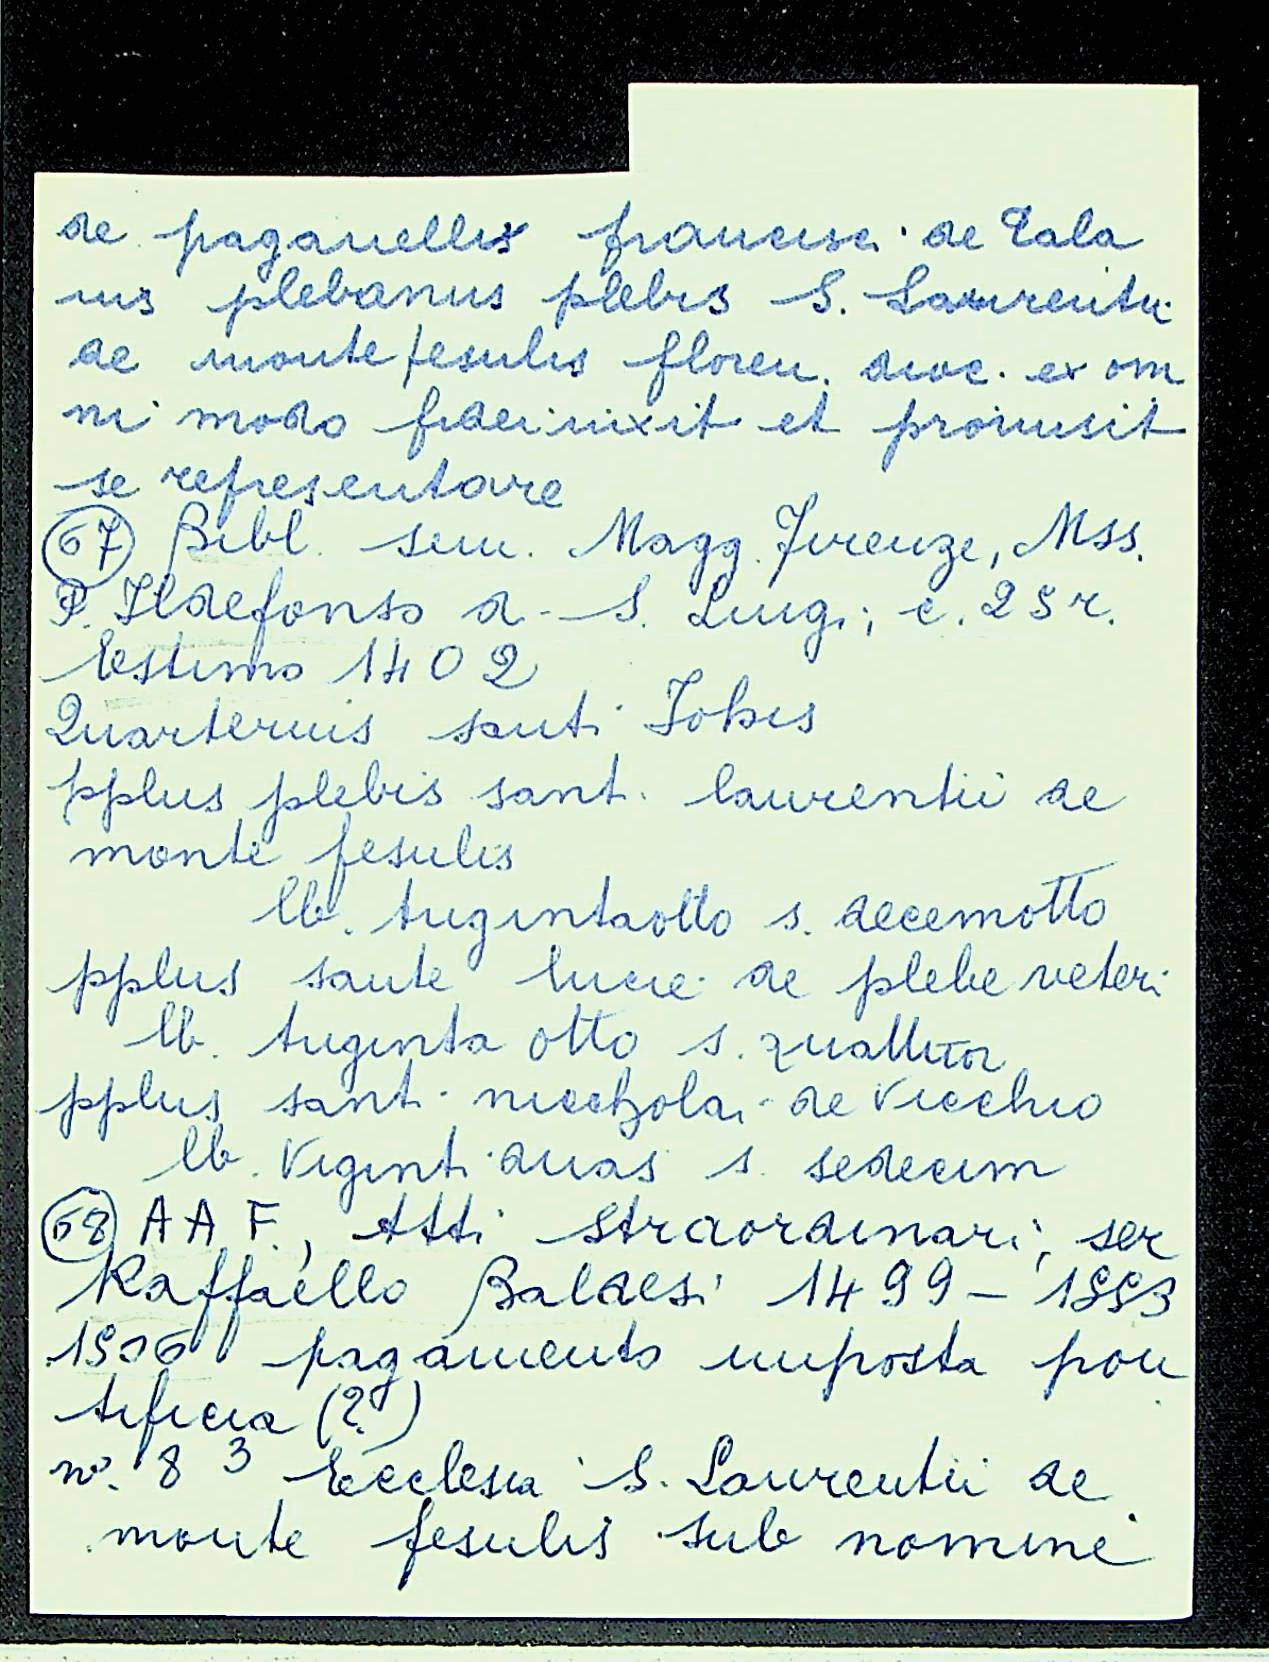 de paganellis francisci de Tala
nis plebanus plebis S. Laurentii
de monte fesulis floren. dioc. ex om
ni modo fideiuixit et promisit
se represent­are
67 Bibl. sem. Magg. Firenze, Mss.
P. Ildefonso di S. Luigi, c. 25 r.
Estimo 1402
Quarternis santi Johis
pplus plebis sant. laurentii de
monte fesulis
lb. trigintaotto s. decemotto
pplus sante lucie de plebe veteri
lb. triginta otto s. quattuor
pplus santi nicchola, de Vicchio
lb. Viginti duas s. sedecim
68 A A F., Atti straordinari, ser
Raffaello Baldesi 1499-1553
1506 pagamento imposta pon
tificia (?)
n°. 8 3 Ecclesia S. Laurentii de
monte fesulis sub nomine